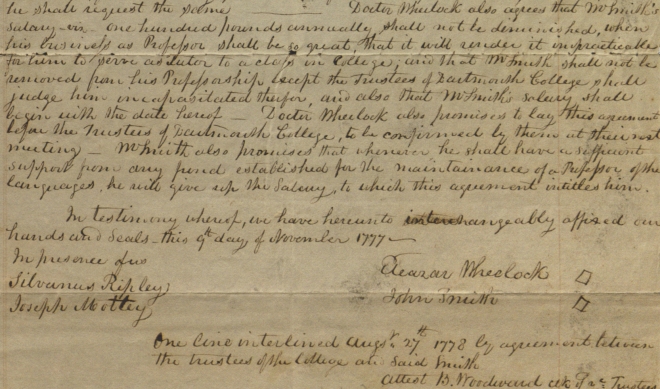 he shall request the same Doctor Wheelock also agrees that Mr Smith's
Salary viz one hundred pounds annually, shall not be deminished, when
his business as Professor shall be so great, that it will render it impracticable
for him to serve as tutor to a class in College; and that Mr Smith shall not be
removed from his Professorship except the Trustees of Dartmouth College shall
judge him incapasitated therefor, and also that Mr Smith's salary shall
begin with the date hereof — Doctor Wheelock also promises to lay this agreement
before the Trustees of Dartmouth College, to be confirmed by them at their next
meeting — Mr Smith also promises that whenever he shall have a sufficient
support from any fund established for the maintainance of a Professor of the
languages, he will give up the Salary, to which this agreement intitles him.
In testimony whereof, we have hereunto interchangeably affixed our
hands and Seals this 9th day of November 1777 —
In presence of us
Eleazar Wheelock
Silvanus Ripley
John Smith
Joseph Motley
One line interlined Augst. 27th 1778 by agreement between
the trustees of the College and Said Smith
Attest B. Woodward Trustees